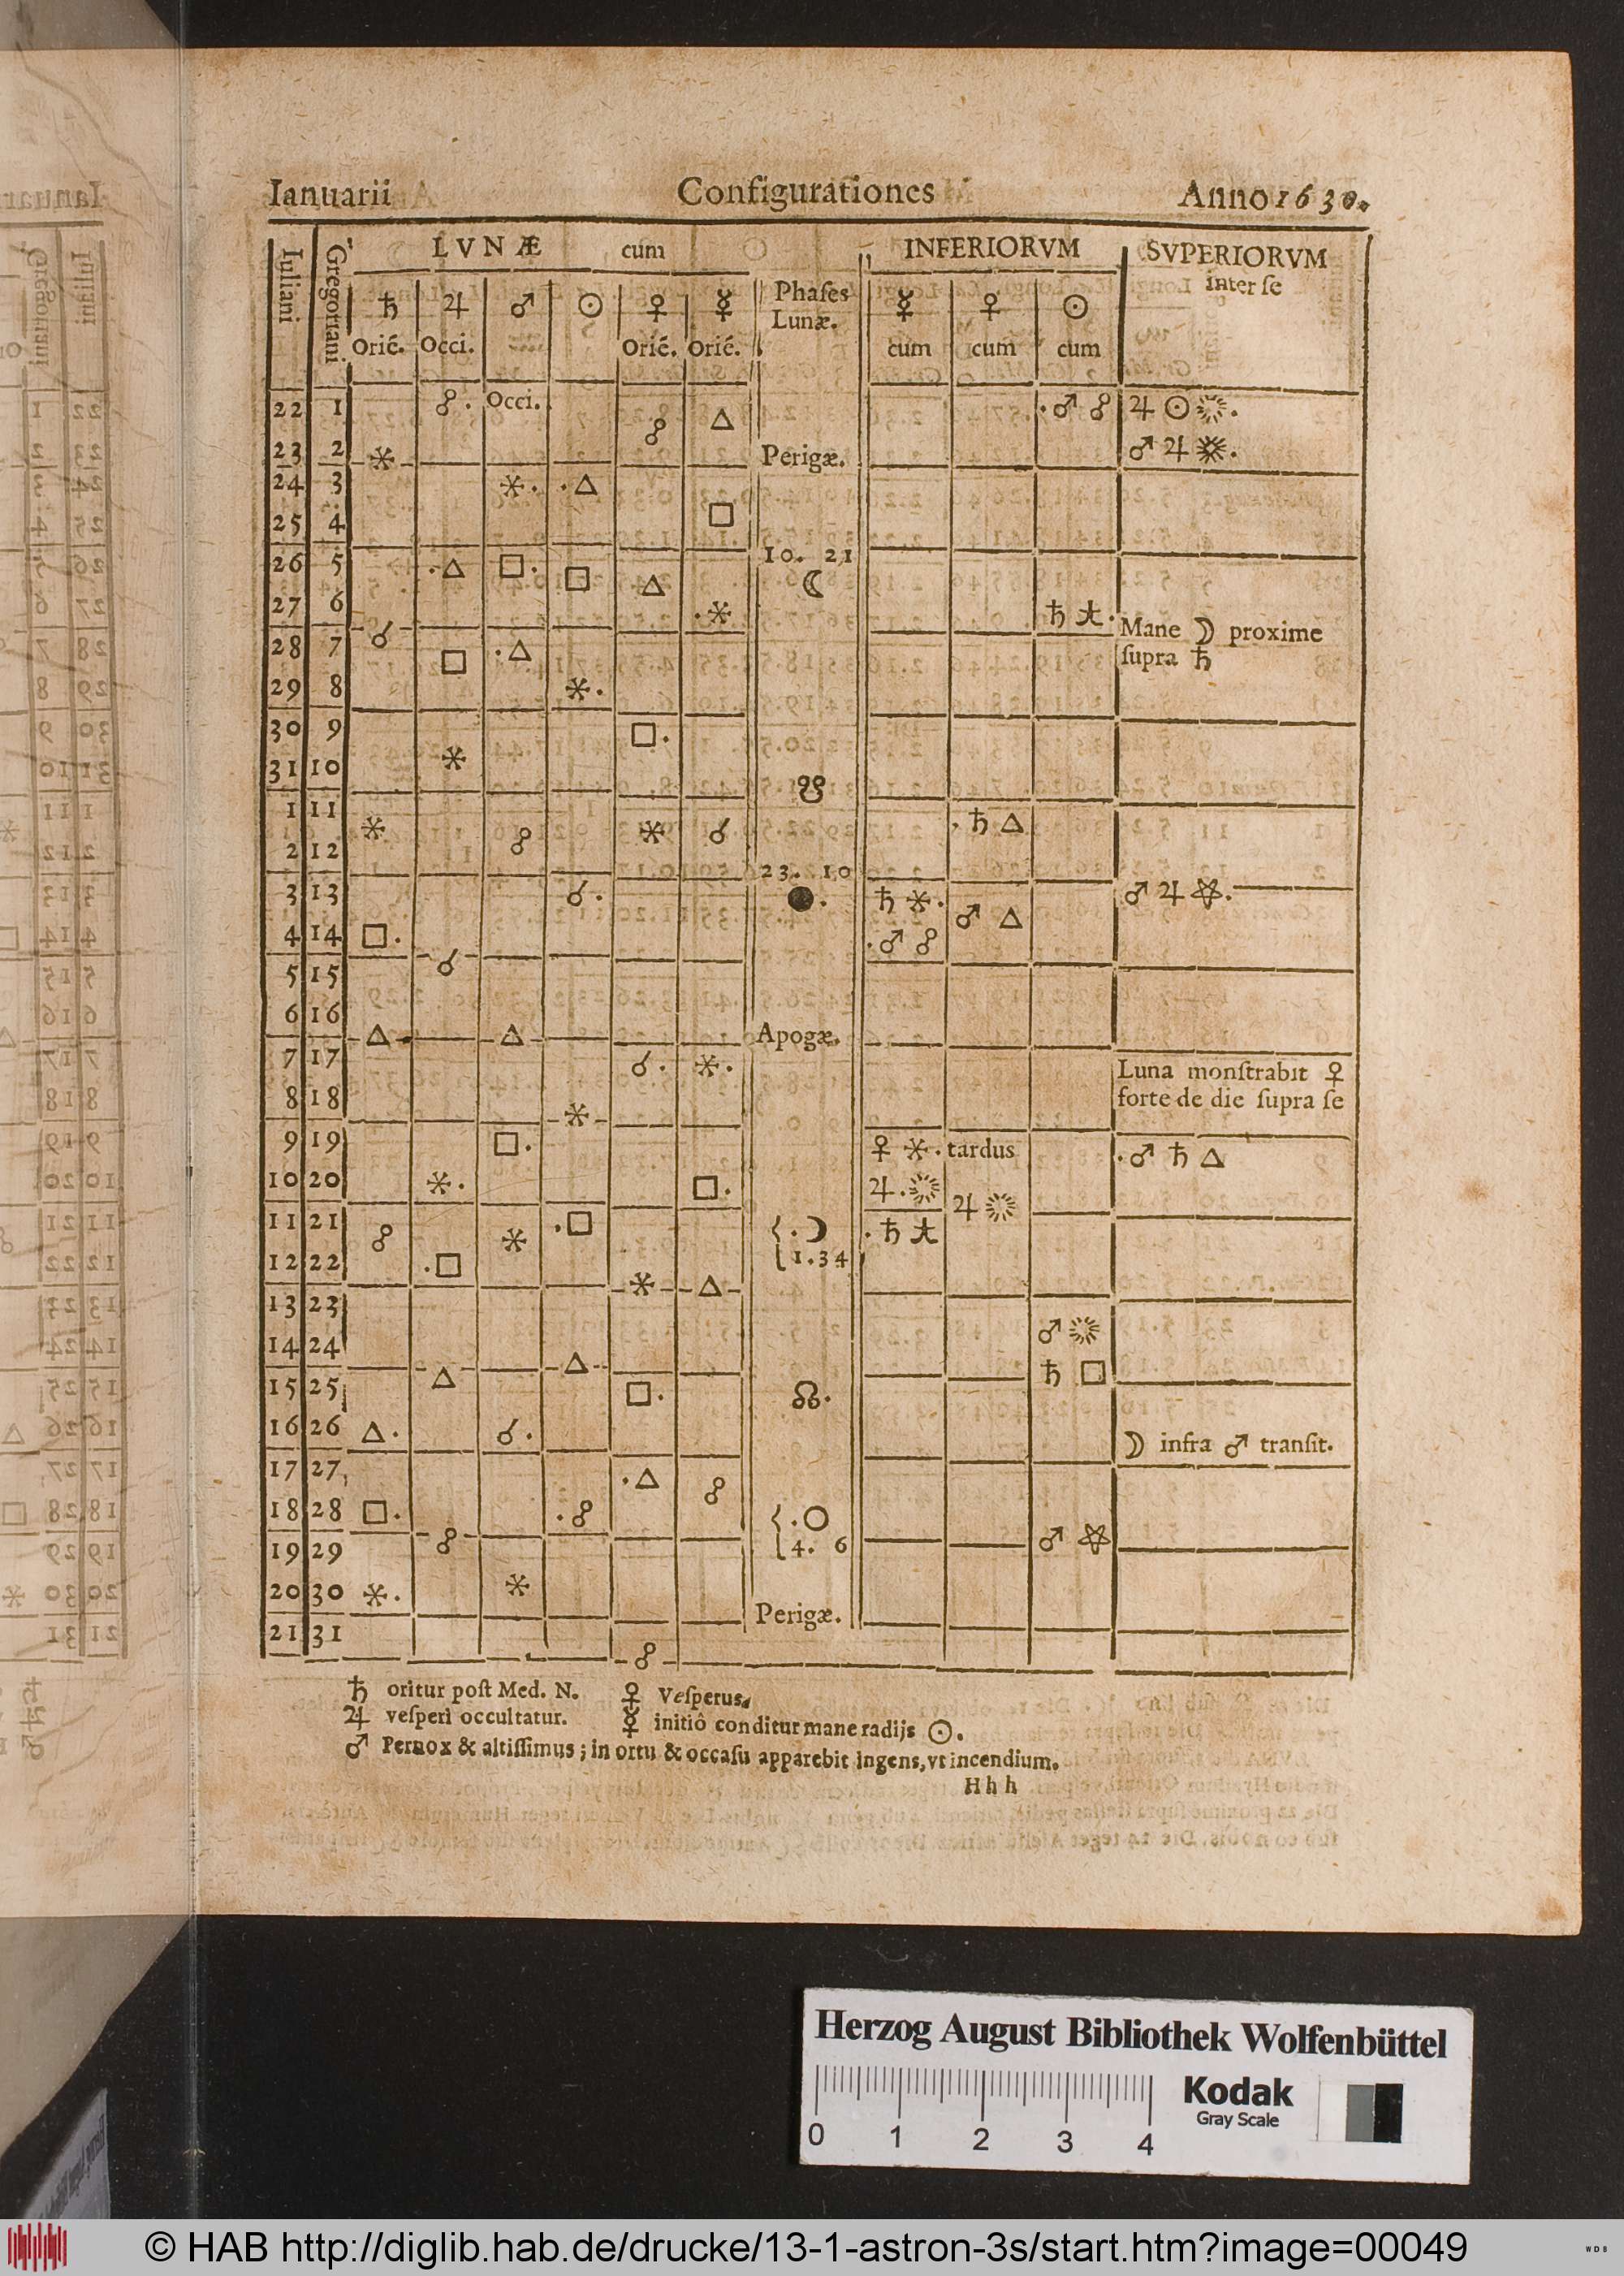 Ianuarii Configurationes Anno 1630.
Iuliani Gregoriani LVNÆ cum INFERIORVM SVPERIORVM
inter ſe
♄ ♃ ♂ ☉ ♀ ☿ Phaſes ☿ ♀ ☉
Lunæ.
Orié. Occi. Orié. Orié. cum cum cum
22 1 ☍. Occi. ☍ △ .♂ ☍ ♃ ☉
23 2 ⚹ Perigæ. ♂ ♃
24 3 ⚹. .△
25 4 □
26 5 .△ □. □ △ 10. 21 ☾
27 6 .⚹ ♄
28 7 ☌ □ .△ Mane ☽ proxime
ſupra ♄
29 8 ⚹.
30 9 □.
31 10 ⚹ ☋
1 11 ⚹ ☍ ⚹ ☌ .♄ △
2 12
3 13 ☌. 23. 10 ●. ♄ ⚹. ♂ △ ♂ ♃
4 14 □. .♂ ☍
5 15 ☌
6 16 △. △ Apogæ.
7 17 ☌. ⚹. Luna monſtrabit ♀
8 18 ⚹ forte de die ſupra ſe
9 19 □. ♀ ⚹. tardus .♂ ♄ △
10 20 ⚹. □. ♃. ♃
11 21 ☍ ⚹ .□ { .☽ .♄
12 22 .□ 1.34
⚹ △
13 23
14 24 △ ♂
15 25 △ □. ☊. ♄ □
16 26 △. ☌. ☽ infra ♂ tranſit.
17 27 .△ ☍
18 28 □. .☍ { .○
19 29 ☍ 4. 6 ♂
20 30 ⚹. ⚹ Perigæ.
21 31 ☍
♄ oritur poſt Med. N. ♀ Veſperus.
♃ veſperi occultatur. ☿ initiô conditur mane radijs ☉.
♂ Pernox & altiſſimus; in ortu & occaſu apparebit ingens, vt incendium.
H h h
Herzog August Bibliothek Wolfenbüttel
Kodak
Gray Scale
0 1 2 3 4
© HAB http://diglib.hab.de/drucke/13-1-astron-3s/start.htm?image=00049
WDB